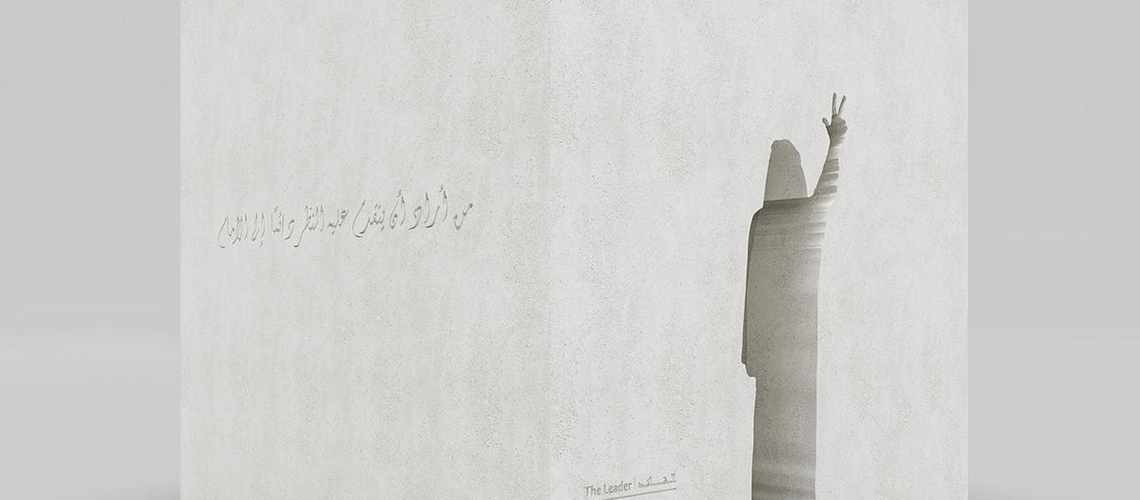 من أراد أن يتقدم عليه النظر دائمًا إلى الأمام
The Leader |